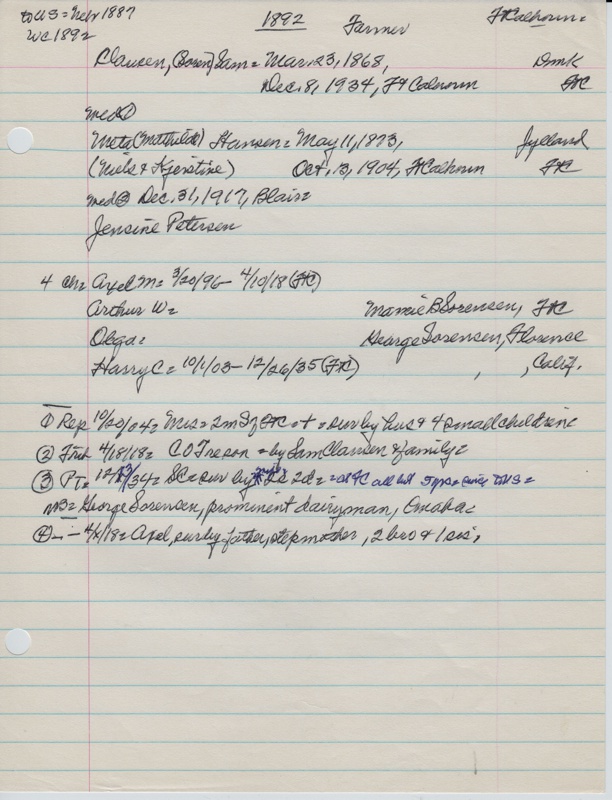 to US = Nebr 1887 1892 Farmer Ft Calhoun =
WC 1892
Clausen, (Boren) Sam = Mar. 23, 1868, Dmk
Dec. 8, 1934, Ft Calhoun FtC
med ①
Meta (Mathilda) Hansen = May 11, 1873, Jylland
(Niels & Kjerstine) Oct. 13, 1904, Ft Calhoun FtC
med ② Dec. 31, 1917, Blair =
Jensine Petersen
4 ch = Axel M = 3/20/96 - 4/10/18 (FtC)
Arthur W = Mamie B Sorensen, FtC
Olga = George Sorensen, Florence
Harry C = 10/1/03 - 12/26/35 (FtC) , , Calif.
① Rep 10/20/04 = Mrs = 2m S of FtC = + = sur by hus & 4 small children =
② 4/18/18 = C O T = by Sam Clausen & family =
③ PT = 12/ /34 = SC = sur by 2s 2d = = at FC all but yrs = since to US =
= George Sorensen, prominent dairyman, Omaha =
④ - - 4/ /18 = Axel, sur by father, stepmother, 2 bro & 1 sis,